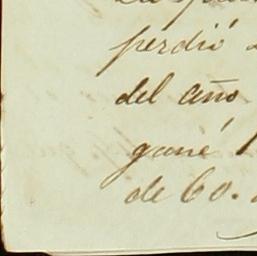 perdió
del año
gané
de 60.